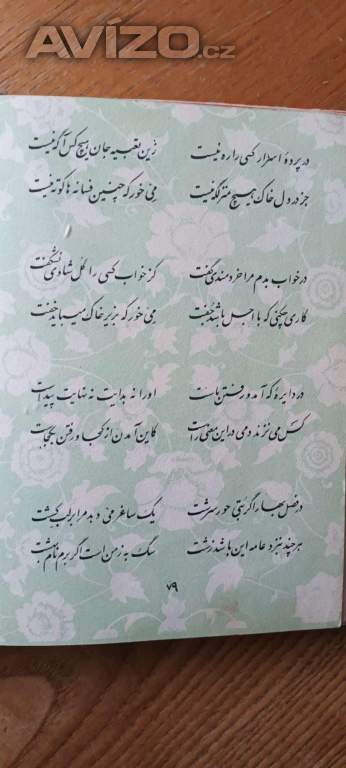 AVÍZO.cz
در پردهٔ اسرار کسی را ره نیست زین تعبیه جان هیچ کس آگه نیست
جز در دل خاک هیچ منزلگه نیست می خور که چنین فسانه ها کوته نیست
در خواب بدم مرا خردمندی گفت کز خواب کسی را گل شادی نشکفت
کاری چکنی که با اجل باشد جفت می خور که بزیر خاک میباید خفت
در دایرهٔ که آمد و رفتن ماست او را نه بدایت نه نهایت پیداست
کس می نزند دمی در این معنی راست کاین آمدن از کجا و رفتن بکجاست
در فصل بهار اگر بتی حور سرشت یک ساغر می دهد مرا بر لب کشت
هر چند بنزد عامه این باشد زشت سگ به زمن است اگر برم نام بهشت
۷۹